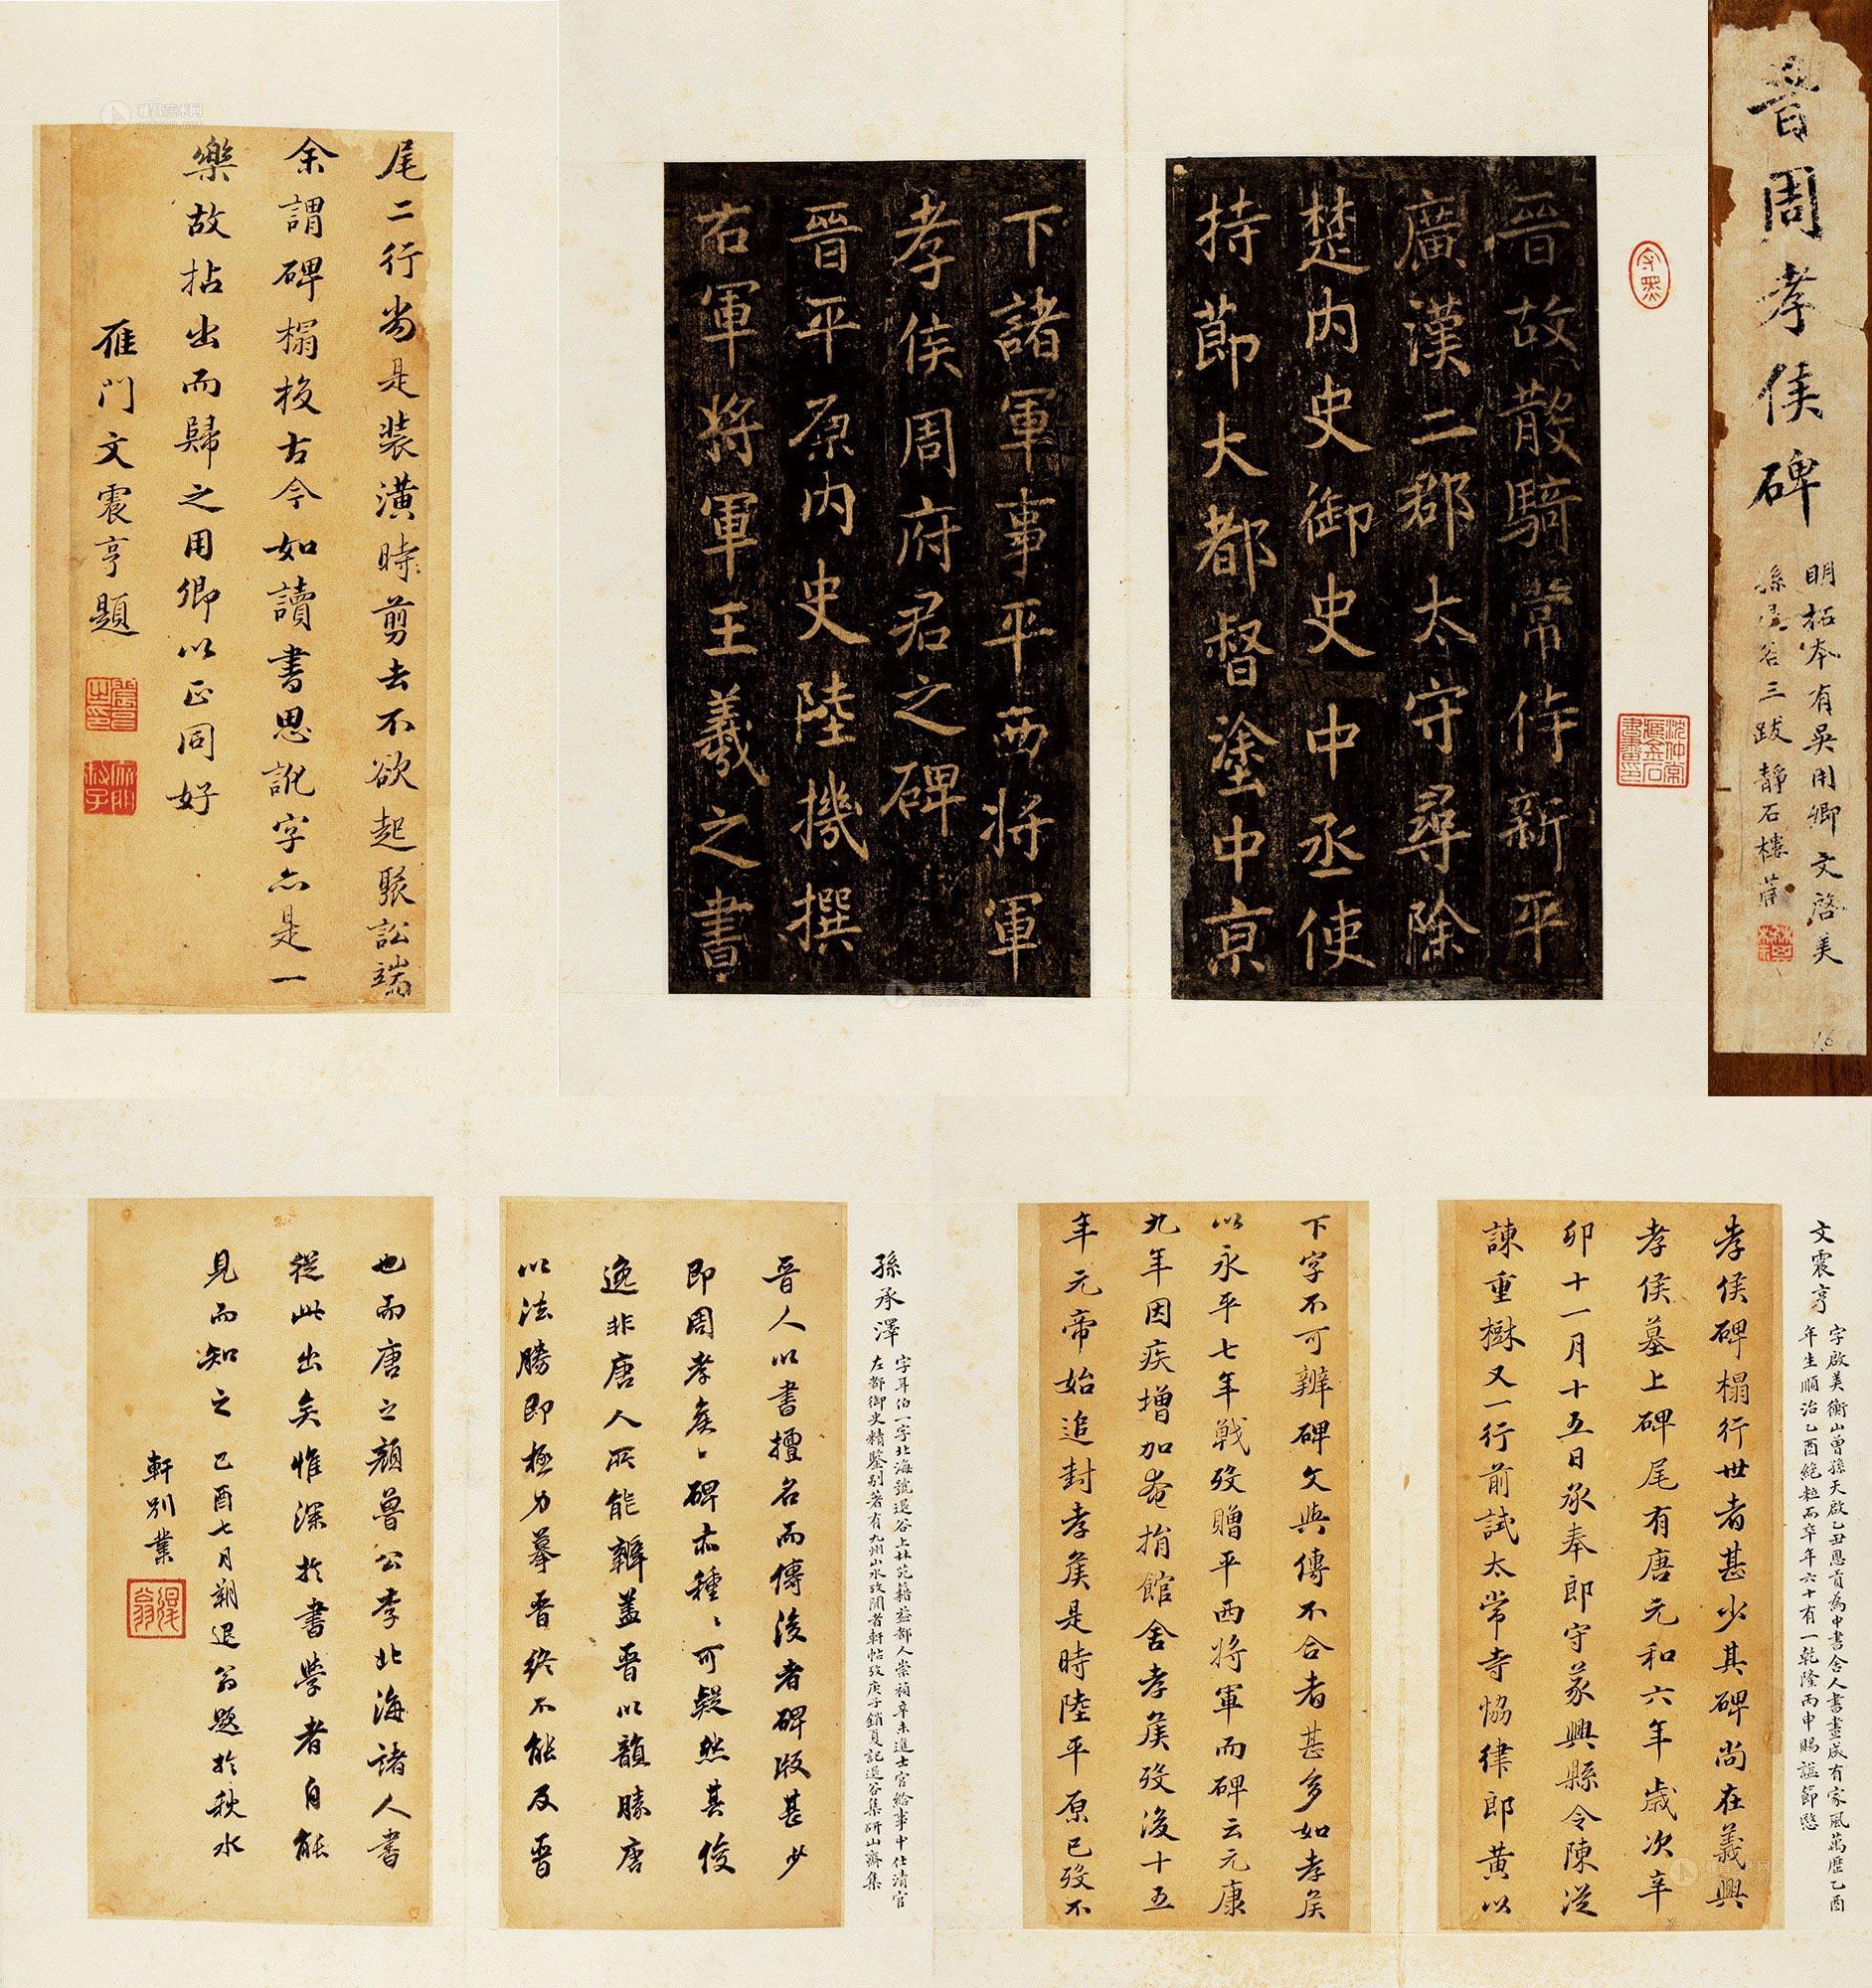 晉周孝侯碑
明拓本有吳用卿文啓美
孫退谷三跋靜石樓舊
16
晉故散騎常侍新平
廣漢二郡太守尋除
楚內史御史中丞使
持節大都督塗中京
下諸軍事平西將軍
孝侯周府君之碑
晉平原內史陸機撰
右軍將軍王羲之書
尾二行當是裝潢時剪去不欲起聚訟端
余謂碑榻扱古今如讀書思訛字亦是一
樂故拈出而歸之用卿以正同好
雁門文震亨題
文震亨
字啟美衡山曾孫天啟乙丑恩貢為中書舍人書畫咸有家風萬歷乙酉
年生順治乙酉絕粒而卒年六十有一乾隆丙申賜諡節愍
孝侯碑榻行世者甚少其碑尚在義興
孝侯墓上碑尾有唐元和六年歲次辛
卯十一月十五日承奉郎守義興縣令陳從
諫重樹又一行前試太常寺恊律郎黃以
下字不可辨碑文與傳不合者甚多如孝侯
以永平七年戰歿贈平西將軍而碑云元康
九年因疾增加奄捐館舍孝侯歿後十五
年元帝始追封孝侯是時陸平原已歿不
孫承澤
字耳伯一字北海號退谷上林苑籍益都人崇禎辛未進士官給事中仕清官
左都御史精鑒別著有九州山水攷閒者軒帖攷庚子銷夏記退谷集研山齋集
晉人以書擅名而傳後者碑版甚少
即周孝侯碑亦種種可疑然其俊
逸非唐人所能辦蓋晉以韻勝唐
以法勝即極力摹晉終不能及晉
也而唐之顏魯公李北海諸人書
從此出矣惟深於書學者自能
見而知之 己酉七月朔退翁題於秋水
軒別業
退翁